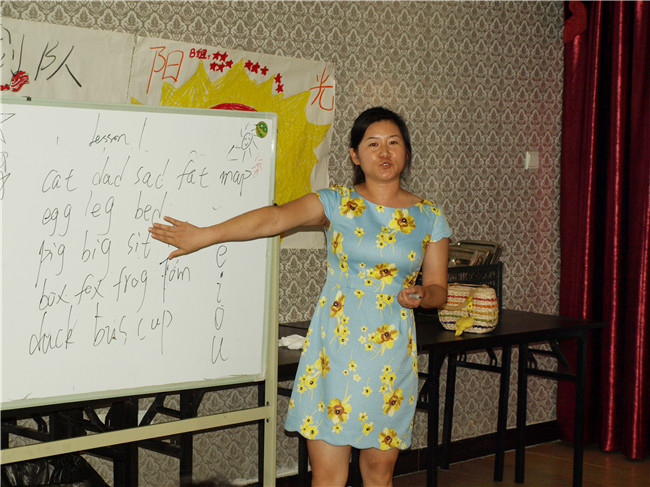 队
阳 B组 光
Lesson 1
cat dad sad fat map
egg leg bed
pig big sit
e
box fox frog Tom
i
o
duck bus cup
u